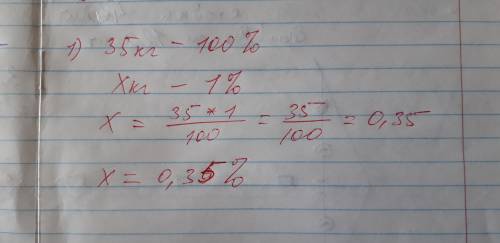 1) 35кг - 100%
Xкг - 1%
X = 35*1/100 = 35/100 = 0,35
X = 0,35%